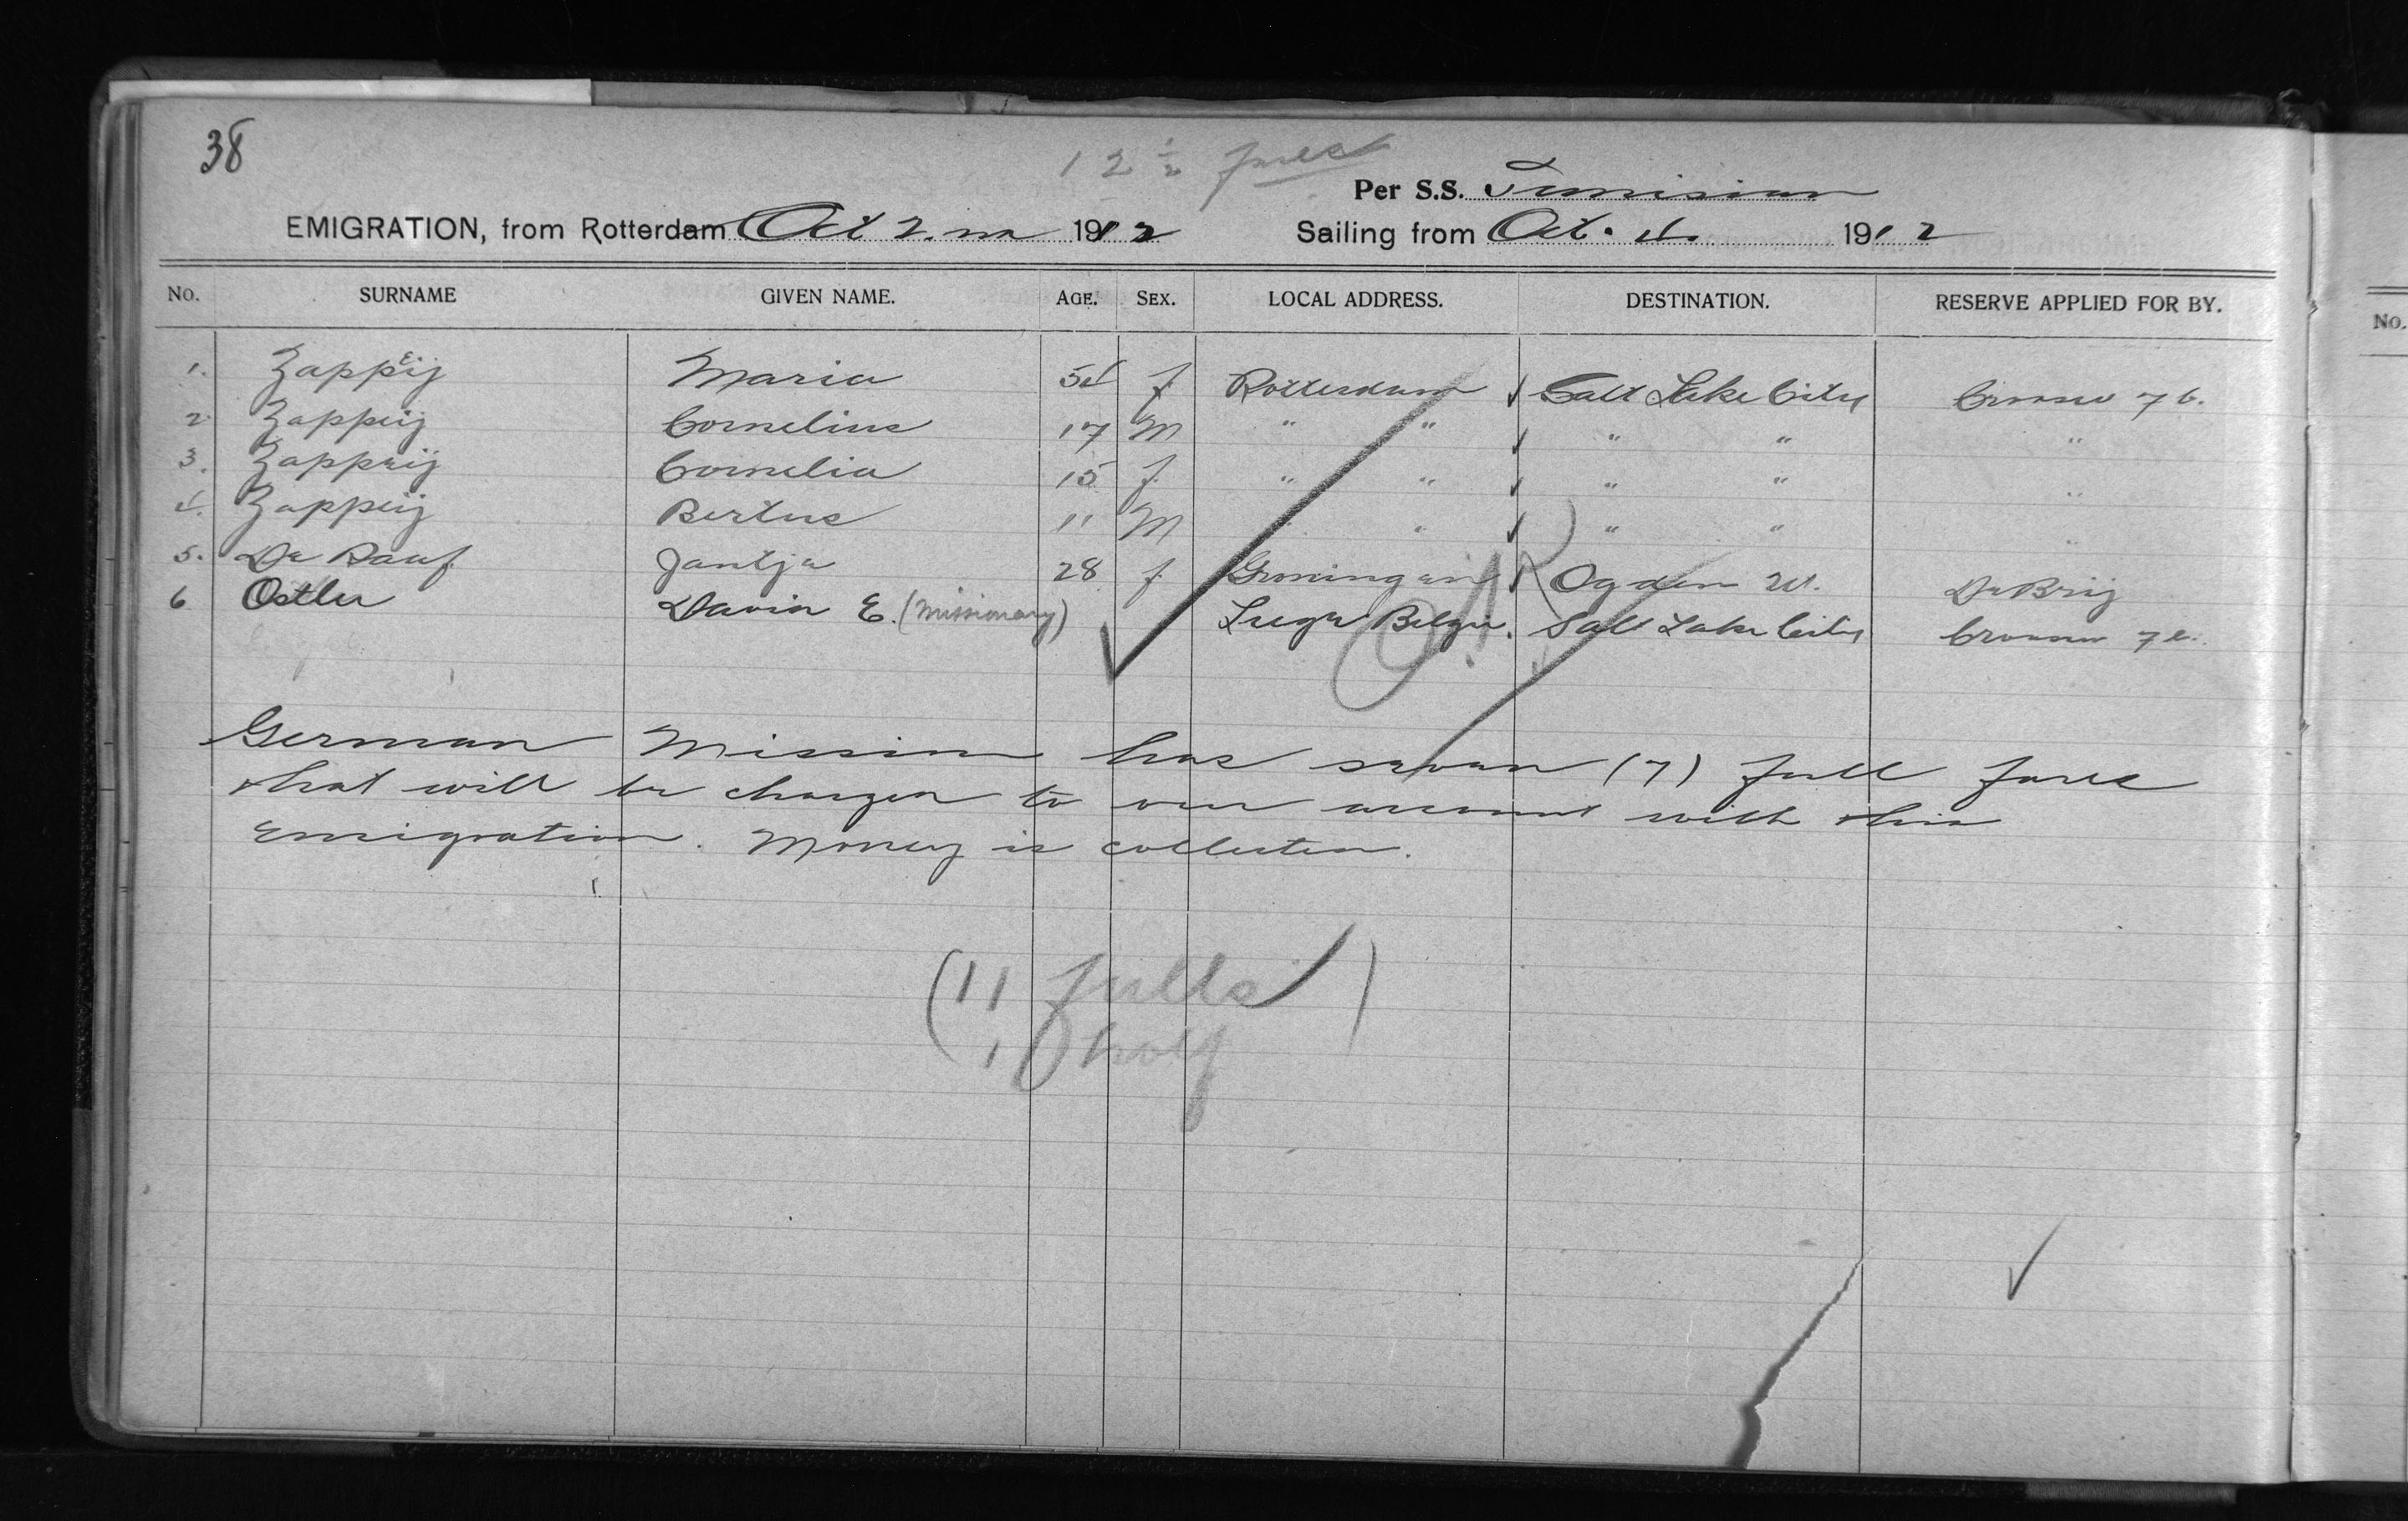 38
12 1/2 fares
Per S.S. Tunisian
EMIGRATION, from Rotterdam Oct 2.nd 1912 Sailing from Oct. 4. 1912
No. SURNAME GIVEN NAME. AGE. SEX. LOCAL ADDRESS. DESTINATION. RESERVE APPLIED FOR BY.
No.
1. Zappeij Maria 54 f. Rotterdam ✓ Salt Lake City 76.
2. Zappeij Cornelius 17 M " " ✓ " " "
3. Zappeij Cornelia 15 f. " " ✓ " " "
4. Zappeij Bertus 11 M " " ✓ " " "
5. De Jantje 28 f. Groningen ✓ Ogden Ut. De Brij
6 Ostler David E. (Missionary) Liege Belgie. Salt Lake City
O.K.
German Mission has seven (7) full fares
that will be charged to our account with this
Emigration. Money is collected.
(11 fulls)
1 half